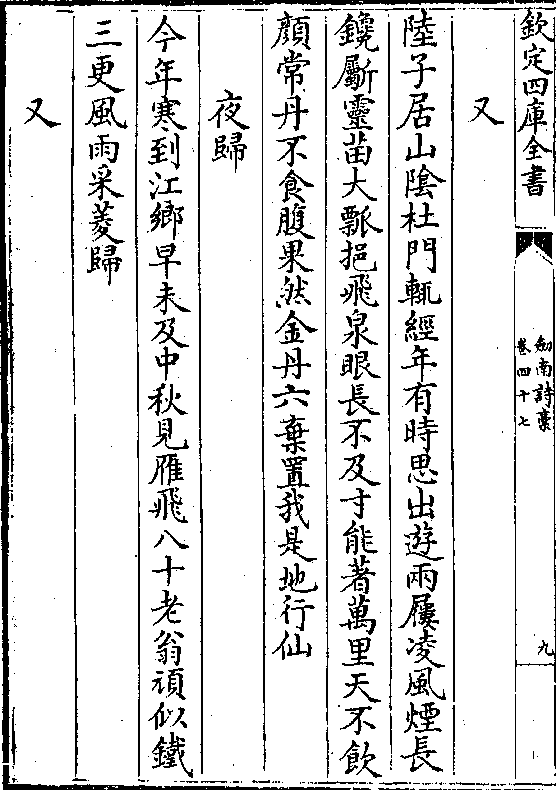 欽定四庫全書
劍南詩藁
卷四十七
九
又
陸子居山陰杜門輒經年有時思出遊兩屨凌風煙長
鑱斸靈苗大瓢挹飛泉眼長不及寸能著萬里天不飲
顏常丹不食腹果然金丹六棄置我是地行仙
夜歸
今年寒到江鄉早未及中秋見雁飛八十老翁頑似鐵
三更風雨采菱歸
又